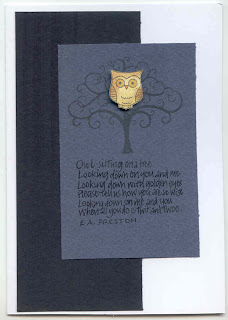 Owl sitting on a tree
Looking down on you and me
Looking down with golden eyes
Please tell us how you are so wise
Looking down on me and you
When all you do is twit and twoo.
E. A. PRESTON